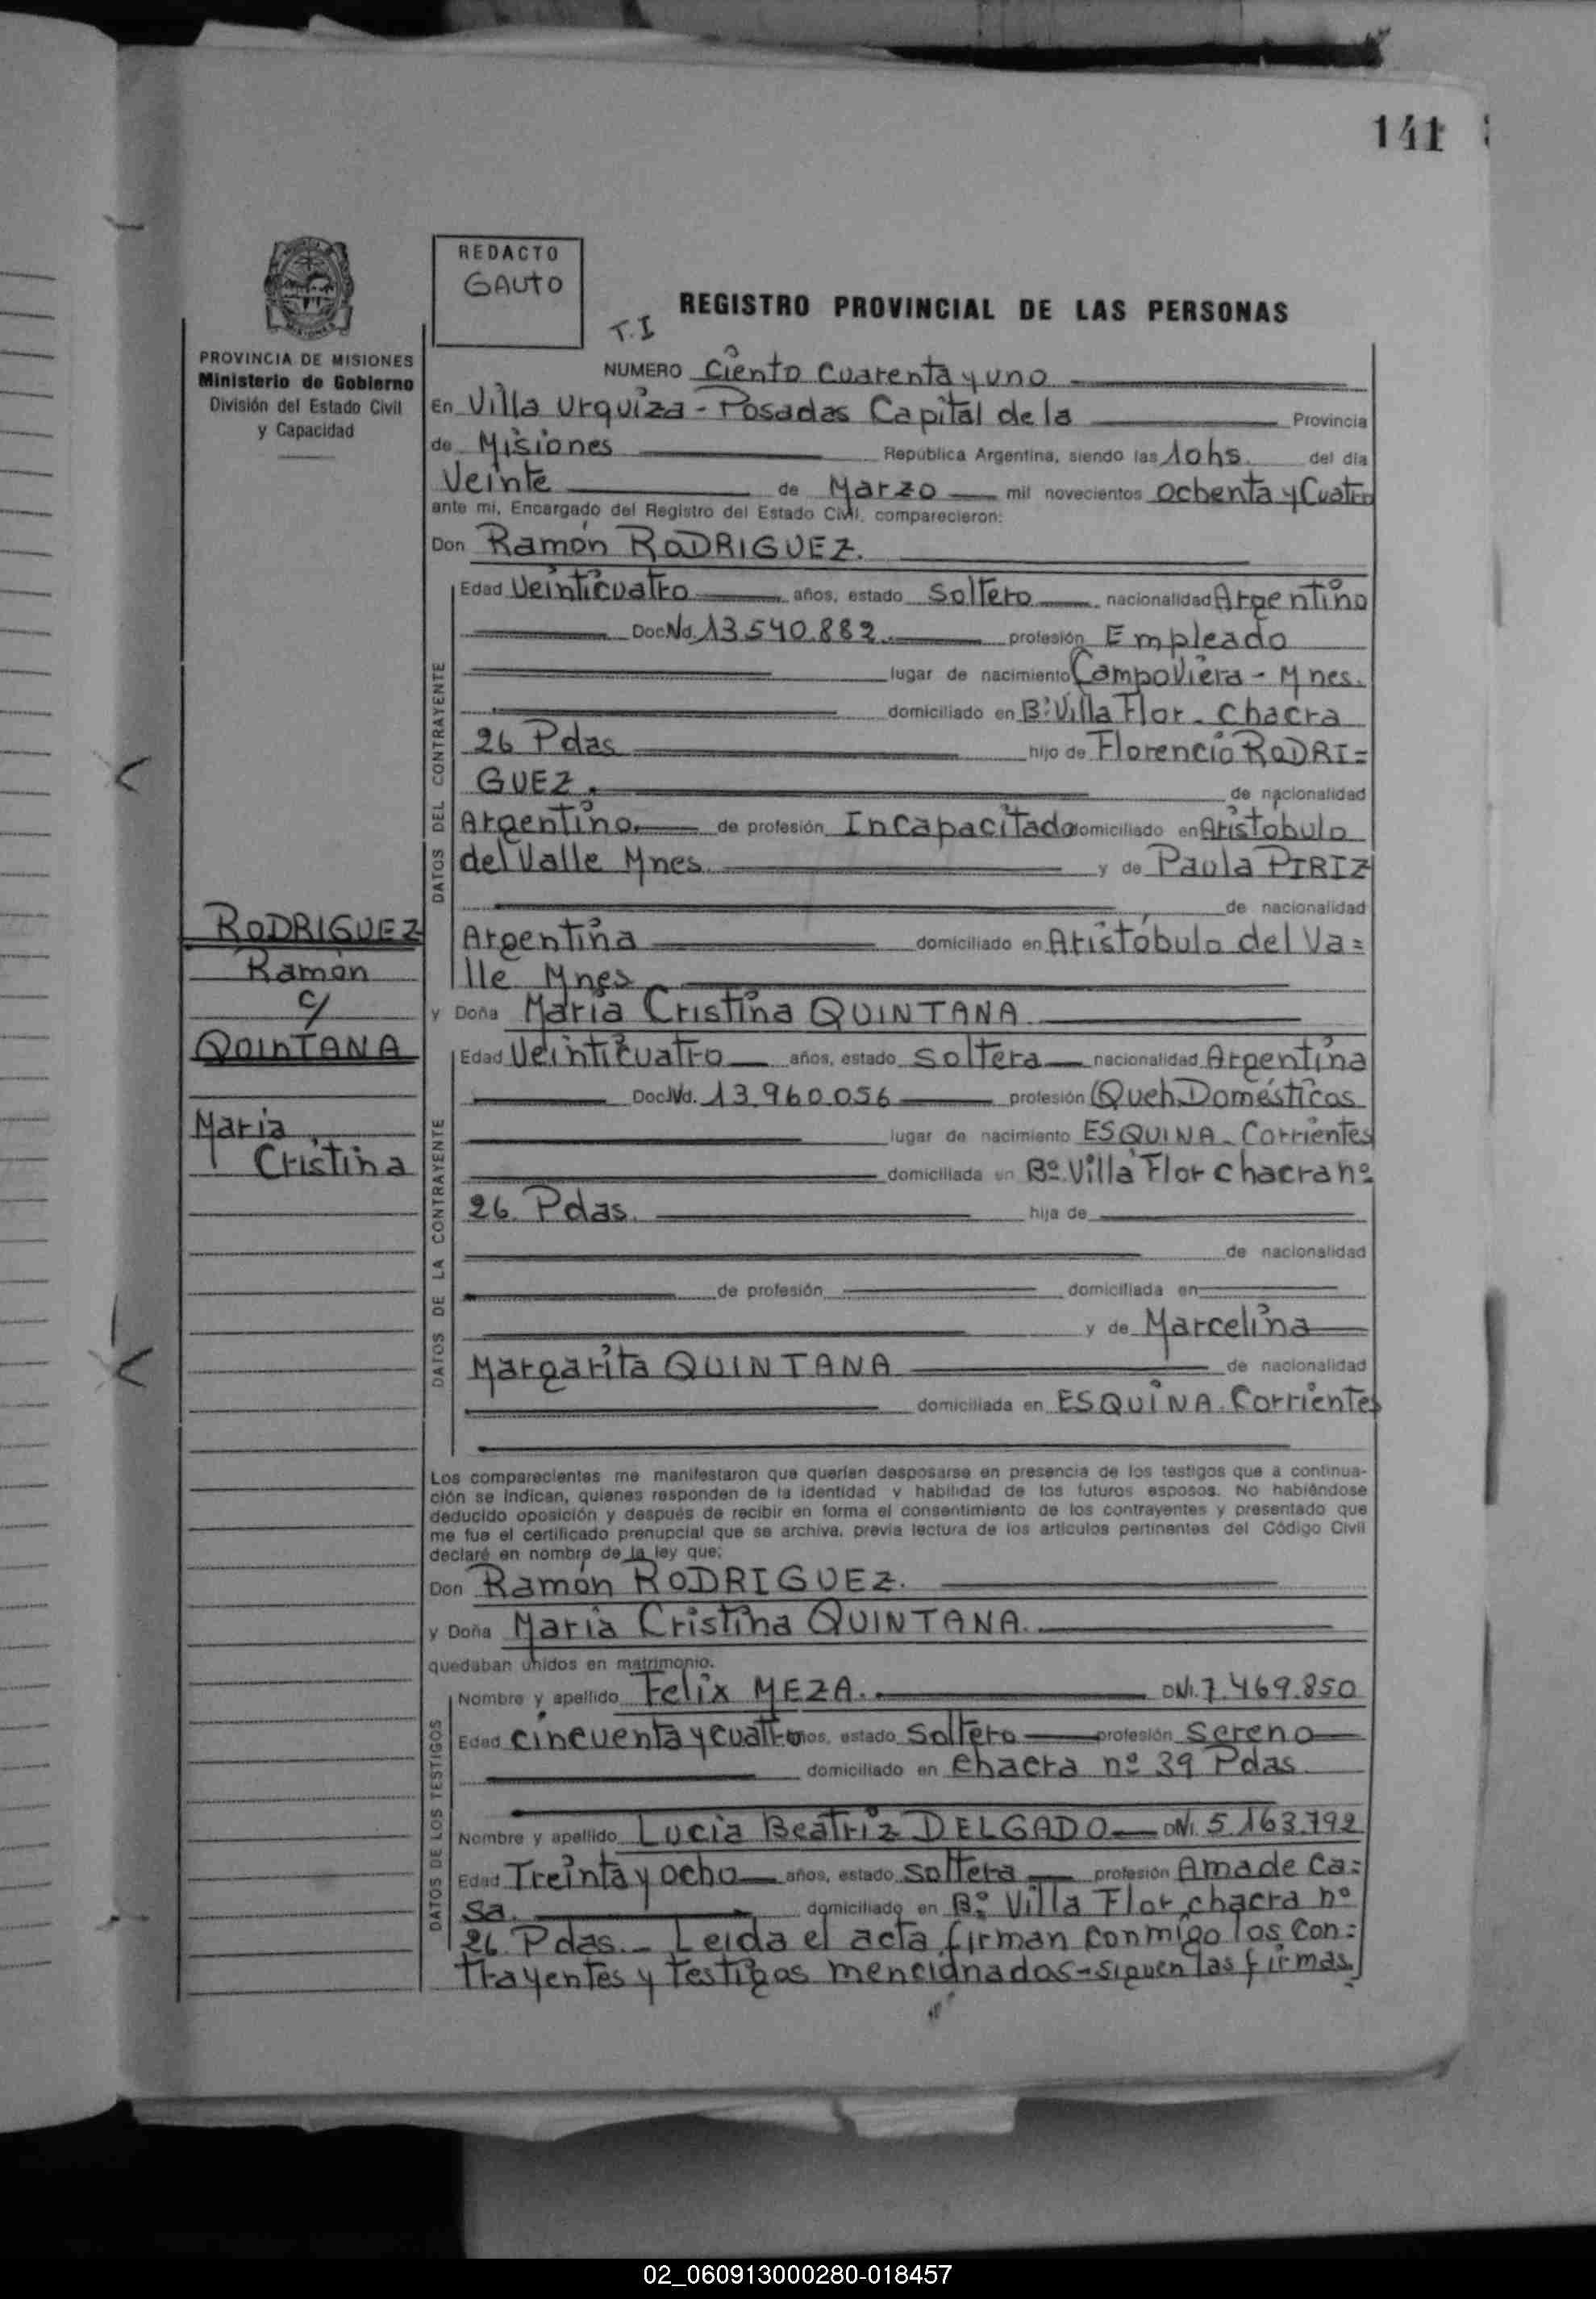 141
REDACTO
GAUTO
T.I
REGISTRO PROVINCIAL DE LAS PERSONAS
PROVINCIA DE MISIONES
Ministerio de Gobierno
División del Estado Civil
y Capacidad
NUMERO Ciento Cuarenta y uno
En Villa Urquiza - Posadas Capital de la Provincia
de Misiones República Argentina, siendo las 10hs. del día
Veinte de Marzo mil novecientos ochenta y Cuatro
ante mi, Encargado del Registro del Estado Civil, comparecieron:
Don Ramón RODRIGUEZ.
DATOS DEL CONTRAYENTE
Edad Veinticuatro años, estado Soltero nacionalidad Argentino
Doc.Nd. 13.540.882. profesión Empleado
lugar de nacimiento CampoViera - Mnes.
domiciliado en Bº Villa Flor - Chacra
26 Pdas hijo de Florencio RODRI=
GUEZ. de nacionalidad
Argentino. de profesión Incapacitado domiciliado en Aristobulo
del Valle Mnes. y de Paula PIRIZ
de nacionalidad
Argentina domiciliado en Aristóbulo del Va=
lle Mnes
y Doña María Cristina QUINTANA
RODRIGUEZ
Ramón
c/
QUINTANA
María
Cristina
DATOS DE LA CONTRAYENTE
Edad Veinticuatro años, estado Soltera nacionalidad Argentina
Doc.Nd. 13.960.056 profesión Queh. Domésticos
lugar de nacimiento ESQUINA - Corrientes
domiciliada en Bº. Villa Flor chacra nº
26. Pdas. hija de
de nacionalidad
de profesión domiciliada en
y de Marcelina
Margarita QUINTANA de nacionalidad
domiciliada en ESQUINA - Corrientes
Los comparecientes me manifestaron que querían desposarse en presencia de los testigos que a continua-
ción se indican, quienes responden de la identidad y habilidad de los futuros esposos. No habiéndose
deducido oposición y después de recibir en forma el consentimiento de los contrayentes y presentado que
me fue el certificado prenupcial que se archiva, previa lectura de los artículos pertinentes del Código Civil
declaré en nombre de la ley que:
Don Ramón RODRIGUEZ.
y Doña María Cristina QUINTANA.
quedaban unidos en matrimonio.
DATOS DE LOS TESTIGOS
Nombre y apellido Felix MEZA. DNI. 7.469.850
Edad cincuenta y cuatro años, estado Soltero profesión Sereno
domiciliado en Chacra nº 39 Pdas
Nombre y apellido Lucia Beatriz DELGADO DNI. 5.163.792
Edad Treinta y ocho años, estado Soltera profesión Ama de Ca=
sa. domiciliado en Bº. Villa Flor chacra nº
26. Pdas. - Leida el acta firman conmigo los con=
trayentes y testigos mencionados - siguen las firmas.
02_060913000280-018457